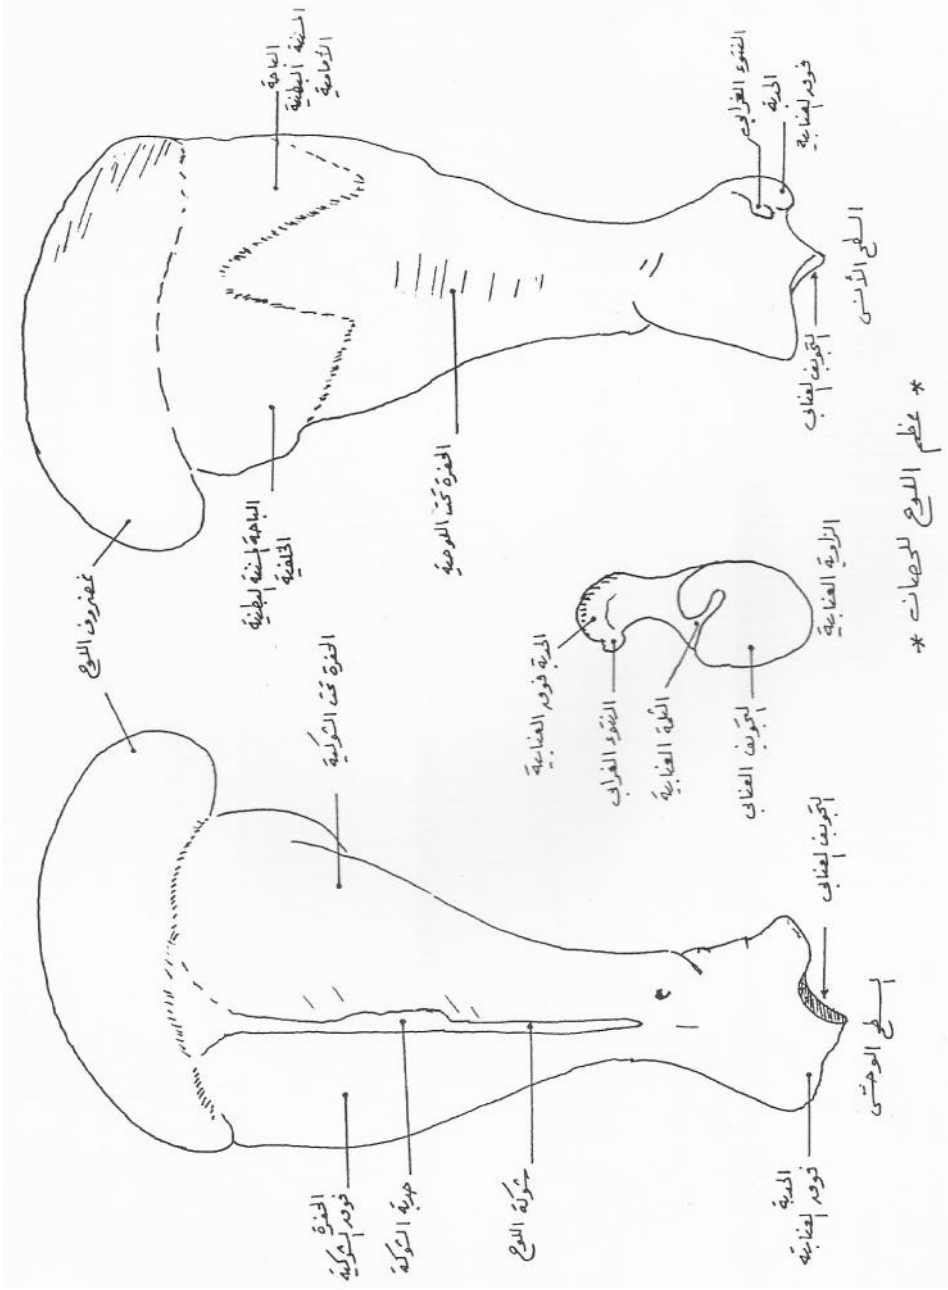 الباحة
المسننة البطنية
الأمامية
النتوء الغرابي
الحدبة
فوق العنابية
السطح الأنسي
التجويف العنابي
الحفرة تحت اللوحية
الباحة المسننة البطنية
الخلفية
غضروف اللوح
الحفرة تحت الشوكية
الحدبة فوق العنابية
النتوء الغرابي
الثلمة العنابية
التجويف العنابي
الزاوية العنابية
* عظم اللوح للحصان *
التجويف العنابي
السطح الوحشي
الحفرة
فوق الشوكية
حدبة الشوكة
شوكة اللوح
الحدبة
فوق العنابية